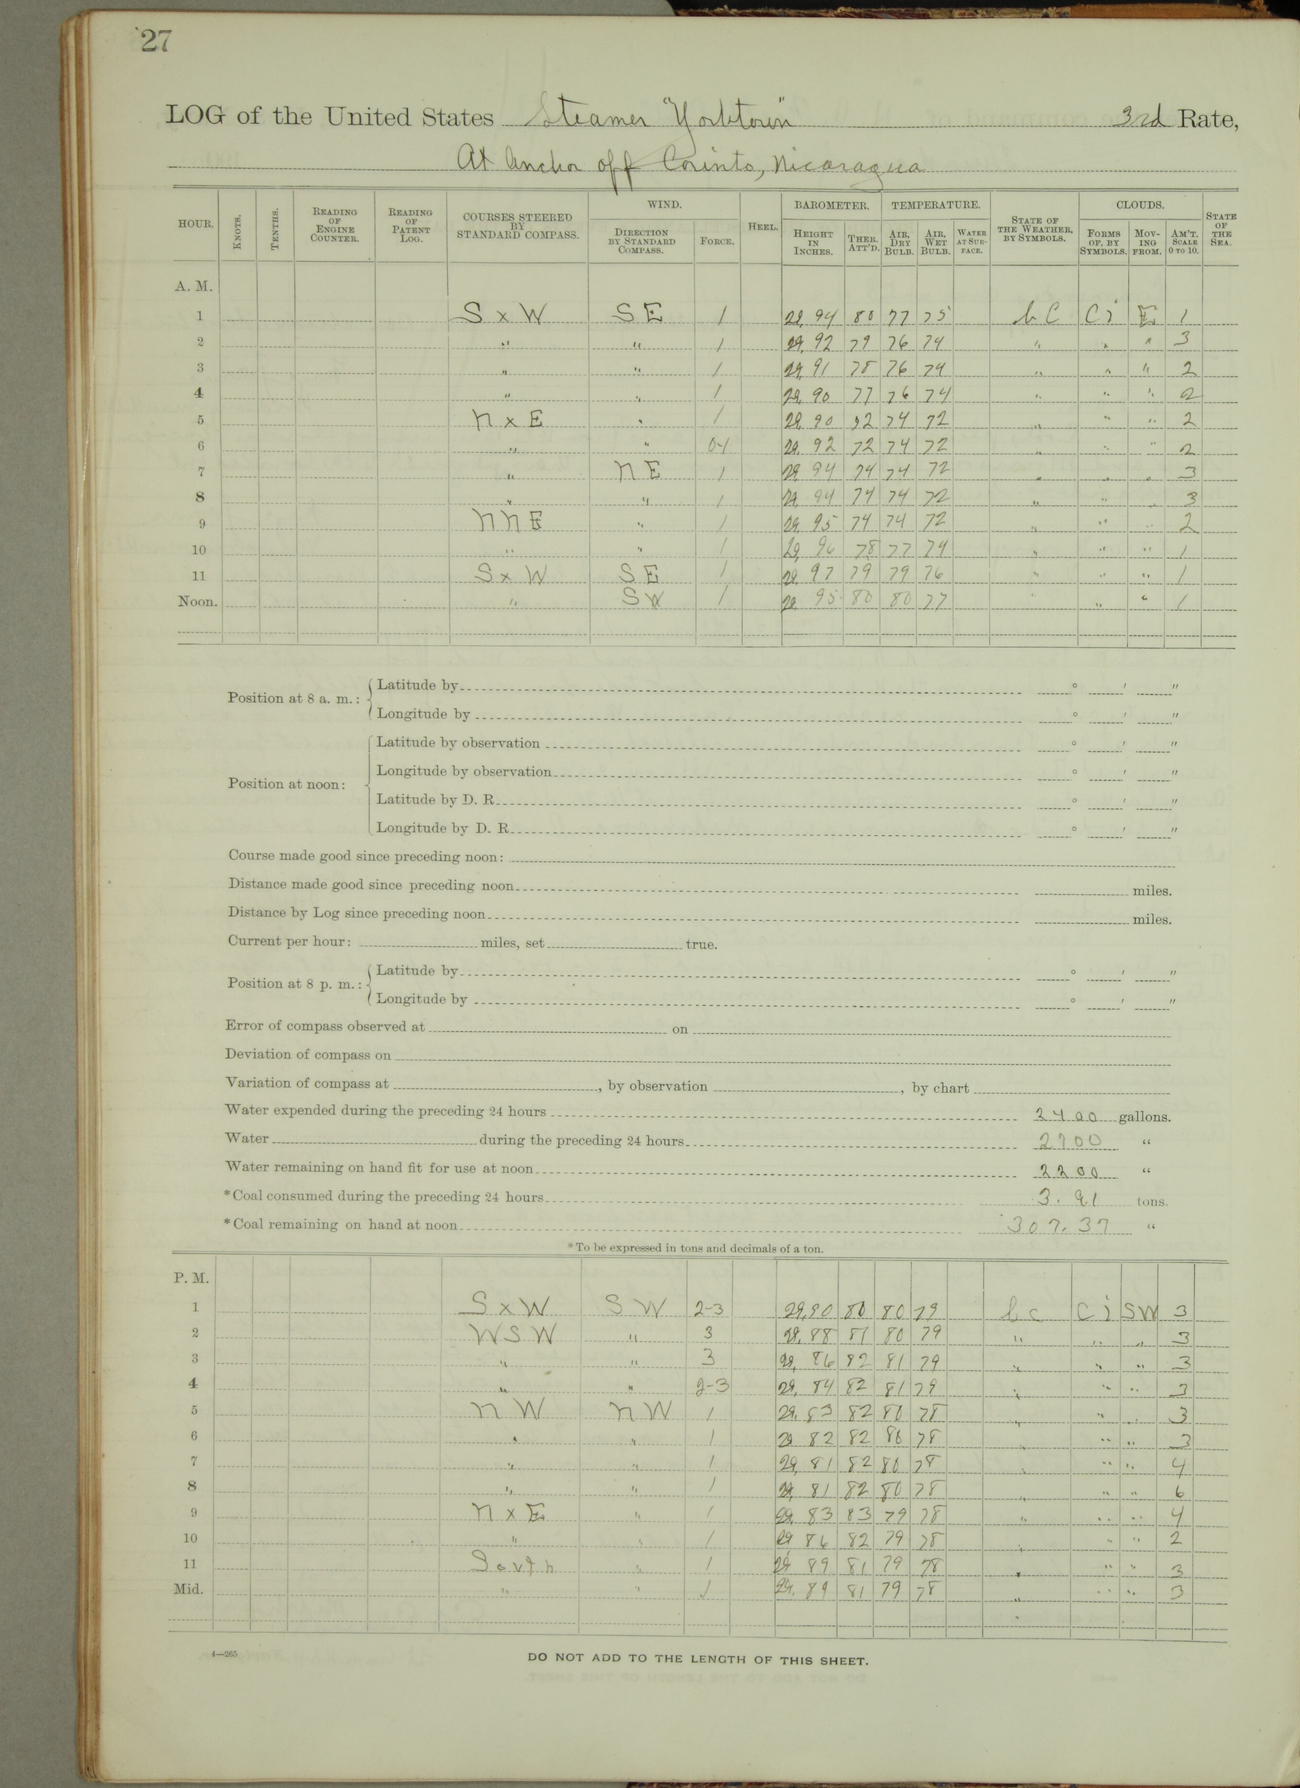 27
LOG of the United States Steamer "Yorktown" 3rd Rate,
At Anchor off Corinto, Nicaragua
HOUR. KNOTS. TENTHS. READING OF ENGINE COUNTER. READING OF PATENT LOG. COURSES STEERED BY STANDARD COMPASS. WIND. DIRECTION BY STANDARD COMPASS. FORCE. HEEL. BAROMETER. HEIGHT IN INCHES. THER. ATT'D. TEMPERATURE. AIR, DRY BULB. AIR, WET BULB. WATER AT SURFACE. STATE OF THE WEATHER, BY SYMBOLS. CLOUDS. FORMS OF, BY SYMBOLS. MOVING FROM. AM'T. SCALE 0 TO 10. STATE OF THE SEA.
A. M.
1 S x W SE 1 29, 94 80 77 75 b c Ci E 1
2 " " 1 29, 92 79 76 74 " " " 3
3 " " 1 29, 91 78 76 74 " " " 2
4 " " 1 29, 90 77 76 74 " " " 2
5 N x E " 1 29, 90 72 74 72 " " " 2
6 " " 0-1 29, 92 72 74 72 " " " 2
7 " NE 1 29 94 74 74 72 " " " 3
8 " " 1 29, 94 74 74 72 " " " 3
9 NNE " 1 29, 95 74 74 72 " " " 2
10 " " 1 29, 96 78 77 74 " " " 1
11 S x W SE 1 29, 97 79 79 76 " " " 1
Noon. " SW 1 29 95 80 80 77 " " " 1
Position at 8 a. m.: Latitude by ° ' "
Longitude by ° ' "
Position at noon: Latitude by observation ° ' "
Longitude by observation ° ' "
Latitude by D. R. ° ' "
Longitude by D. R. ° ' "
Course made good since preceding noon:
Distance made good since preceding noon miles.
Distance by Log since preceding noon miles.
Current per hour: miles, set true.
Position at 8 p. m.: Latitude by ° ' "
Longitude by ° ' "
Error of compass observed at on
Deviation of compass on
Variation of compass at , by observation , by chart
Water expended during the preceding 24 hours 2400 gallons.
Water during the preceding 24 hours 2700 "
Water remaining on hand fit for use at noon 2200 "
*Coal consumed during the preceding 24 hours 3.91 tons.
*Coal remaining on hand at noon 307.37 "
*To be expressed in tons and decimals of a ton.
P. M.
1 S x W SW 2-3 29,90 80 80 79 b c Ci SW 3
2 WSW " 3 29, 88 81 80 79 " " " 3
3 " " 3 29, 86 82 81 79 " " " 3
4 " " 2-3 29, 84 82 81 79 " " " 3
5 NW NW 1 29. 83 82 80 78 " " " 3
6 " " 1 29 82 82 80 78 " " " 3
7 " " 1 29, 81 82 80 78 " " " 4
8 " " 1 29, 81 82 80 78 " " " 6
9 N x E " 1 29, 83 83 79 78 " " " 4
10 " " 1 29 86 82 79 78 " " " 2
11 South " 1 29 89 81 79 78 " " " 3
Mid. " " 1 29. 89 81 79 78 " " " 3
4—265
DO NOT ADD TO THE LENGTH OF THIS SHEET.